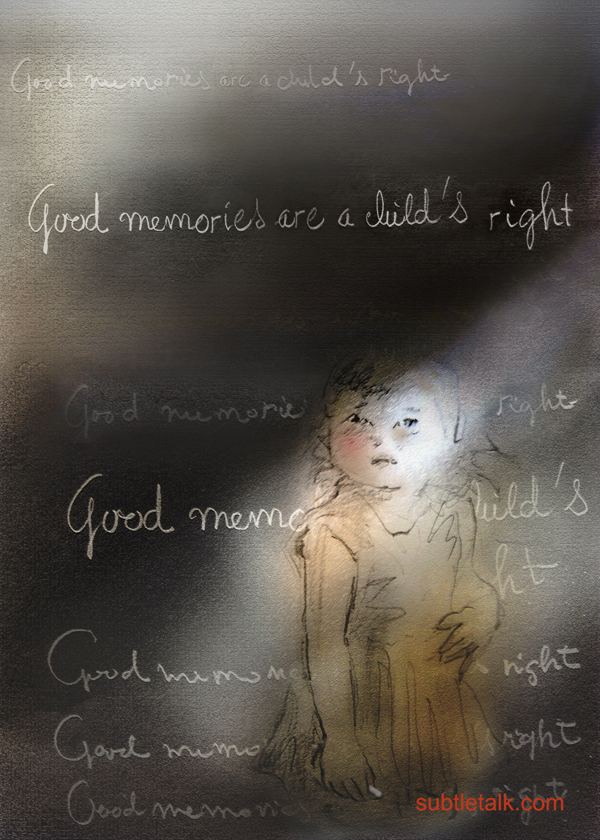 Good memories are a child's right
Good memories are a child's right
Good memorie right
Good memo hild's
ht
Good memo right
Good memo right
Good memories right
subtletalk.com